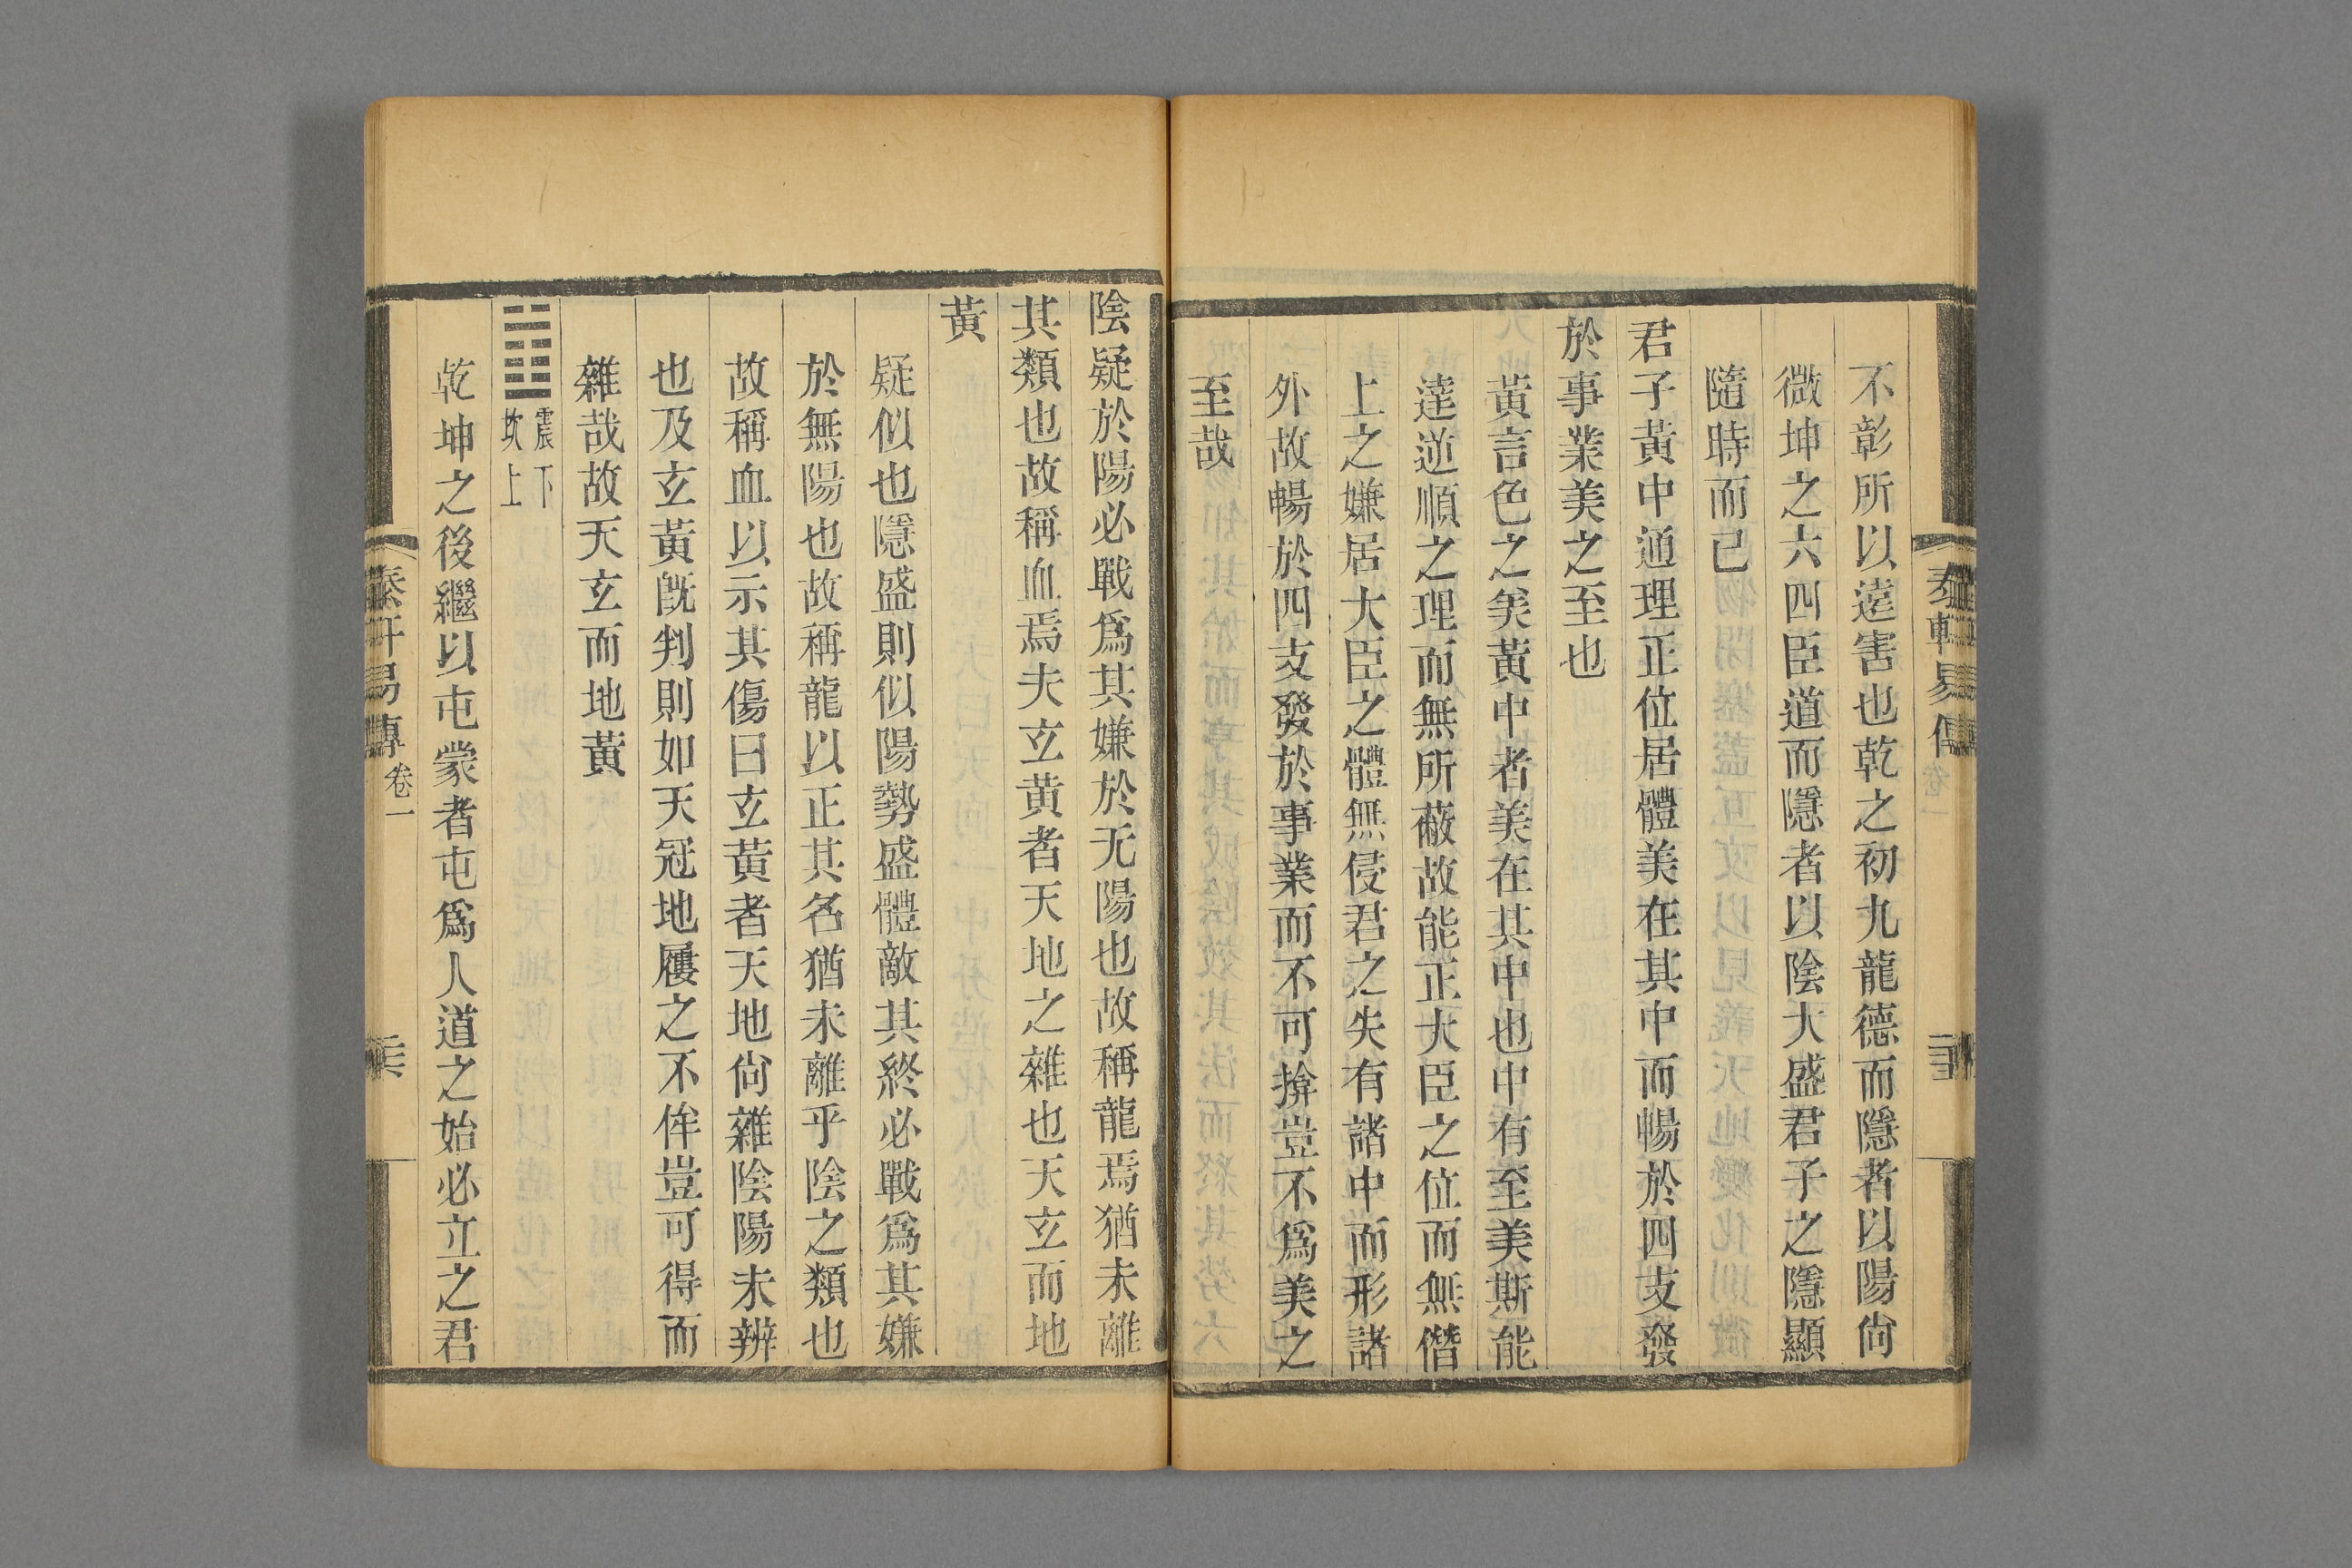 不彰所以遠害也乾之初九龍德而隱者以陽尙
微坤之六四臣道而隱者以陰大盛君子之隱顯
隨時而已
君子黃中通理正位居體美在其中而暢於四支發
於事業美之至也
黃言色之美黃中者美在其中也中有至美斯能
達逆順之理而無所蔽故能正大臣之位而無僭
上之嫌居大臣之體無侵君之失有諸中而形諸
外故暢於四支發於事業而不可揜豈不爲美之
至哉
陰疑於陽必戰爲其嫌於无陽也故稱龍焉猶未離
其類也故稱血焉夫玄黃者天地之雜也天玄而地
黃
疑似也隱盛則似陽勢盛體敵其終必戰爲其嫌
於無陽也故稱龍以正其名猶未離乎陰之類也
故稱血以示其傷曰玄黃者天地尙雜陰陽未辨
也及玄黃旣判則如天冠地屨之不侔豈可得而
雜哉故天玄而地黃
䷂震下坎上
乾坤之後繼以屯蒙者屯爲人道之始必立之君
易傳 卷一